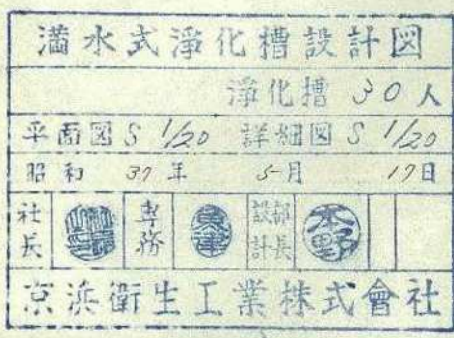 満水式淨化槽設計図
淨化槽 30人
平面図 S 1/20 詳細図 S 1/20
昭和 37年 5月 17日
社長 専務 設計部長 水野
京浜衛生工業株式會社